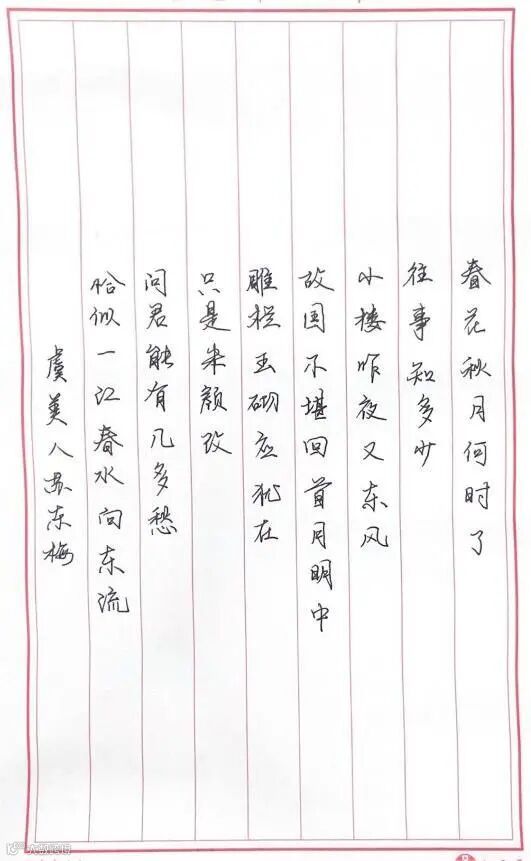 春花秋月何时了
往事知多少
小楼昨夜又东风
故国不堪回首月明中
雕栏玉砌应犹在
只是朱颜改
问君能有几多愁
恰似一江春水向东流
虞美人苏东梅